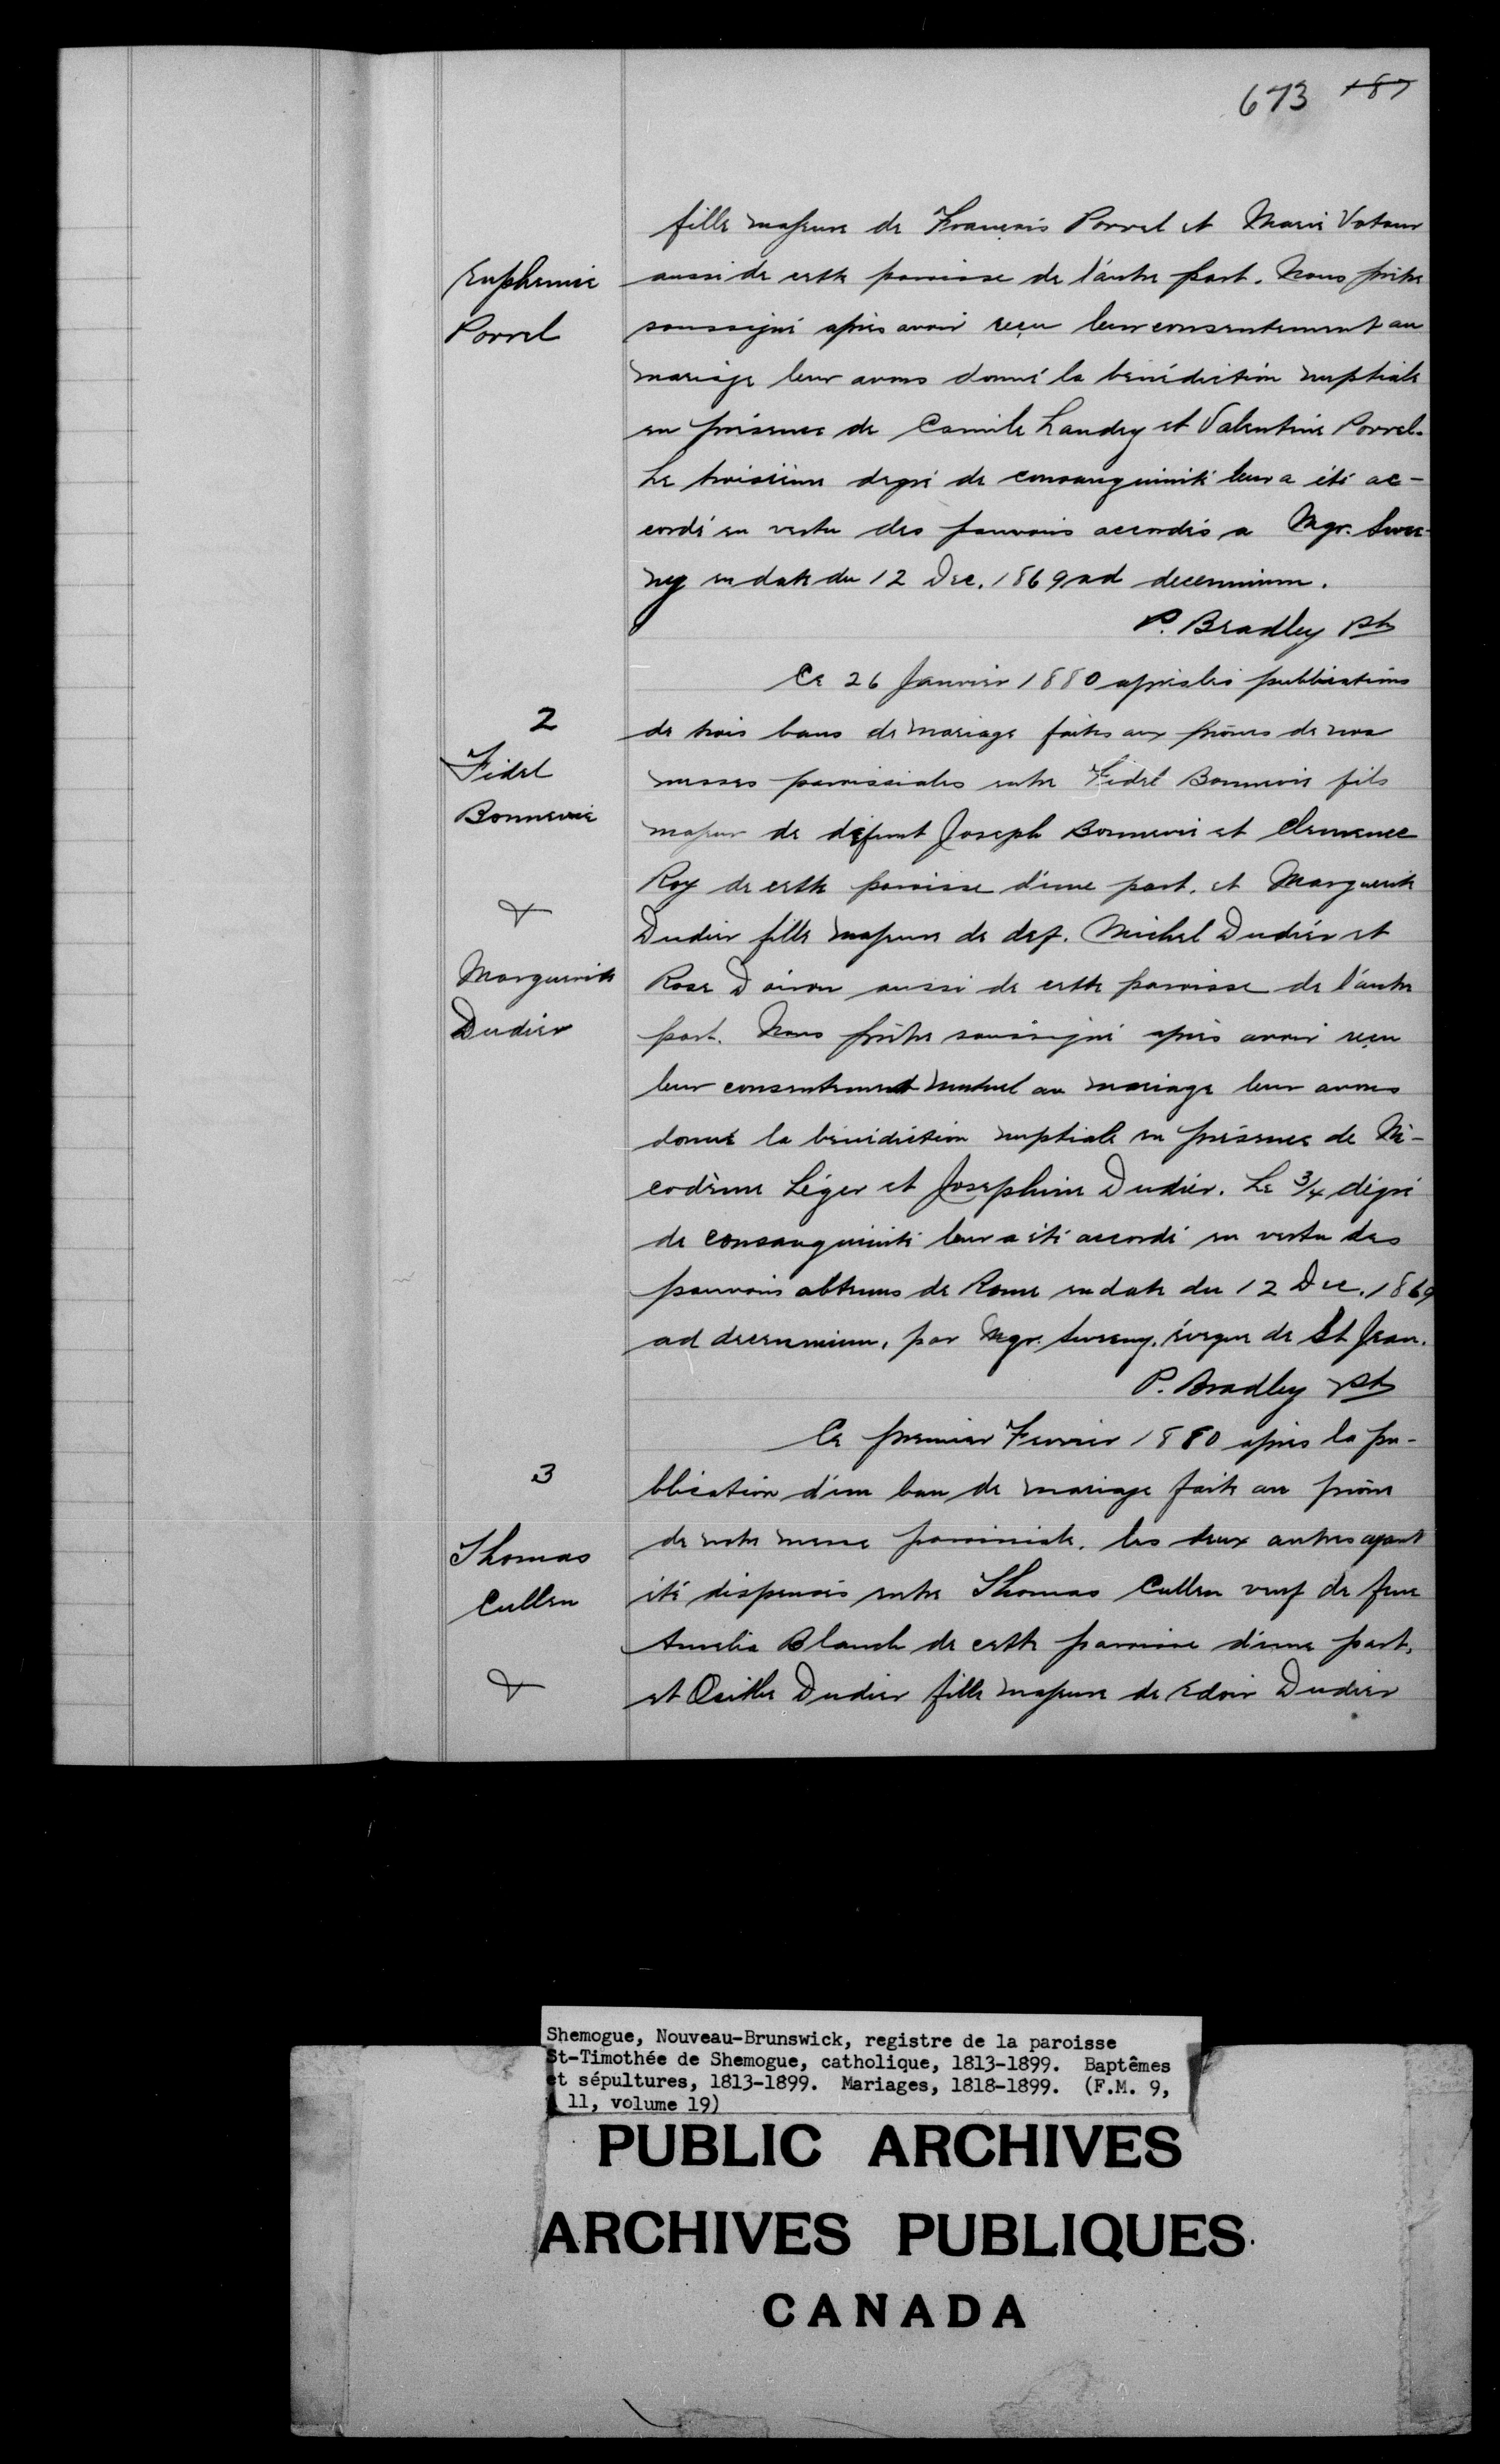 673 187
fille majeure de François Porrel et Marie Vatour
Euphemie
aussi de cette paroisse de l'autre part. Nous prêtre
Porrel
soussigné après avoir reçu leur consentement au
mariage leur avons donné la bénédiction nuptiale
en présence de Camile Landry et Valentine Porrel.
Le troisième degré de consanguinité leur a été ac-
cordé en vertu des pouvoirs accordés a Mgr. Swee-
ny en date du 12 Dec. 1869 ad decennium.
P. Bradley Ptr
Ce 26 Janvier 1880 après les publications
2
de trois bans de mariage faites aux prônes de nos
Fidel
messes paroissiales entre Fidel Bonnevie fils
Bonnevie
majeur de défunt Joseph Bonnevie et Clemence
Roy de cette paroisse d'une part. et Marguerite
&
Dudier fille majeure de def. Michel Dudier et
Marguerite
Rose Doiron aussi de cette paroisse de l'autre
Dudier
part. Nous prêtre soussigné après avoir reçu
leur consentement mutuel au mariage leur avons
donné la bénédiction nuptiale en présence de Ni-
codème Léger et Josephine Dudier. Le 3/4 dégré
de consanguinité leur a été accordé en vertu des
pouvoirs obtenus de Rome en date du 12 Dec. 1869
ad decennium, par Mgr. Sweeny, évêque de St Jean.
P. Bradley Ptr
Ce premier Fevrier 1880 après la pu-
3
blication d'un ban de mariage faite au prône
de notre messe paroissiale. les deux autres ayant
Thomas
été dispensés entre Thomas Cullen veuf de feue
Cullen
Amelia Blanch de cette paroisse d'une part,
&
et Osithe Dudier fille majeure de Edoir Dudier
Shemogue, Nouveau-Brunswick, registre de la paroisse
St-Timothée de Shemogue, catholique, 1813-1899. Baptêmes
et sépultures, 1813-1899. Mariages, 1818-1899. (F.M. 9,
11, volume 19)
PUBLIC ARCHIVES
ARCHIVES PUBLIQUES
CANADA